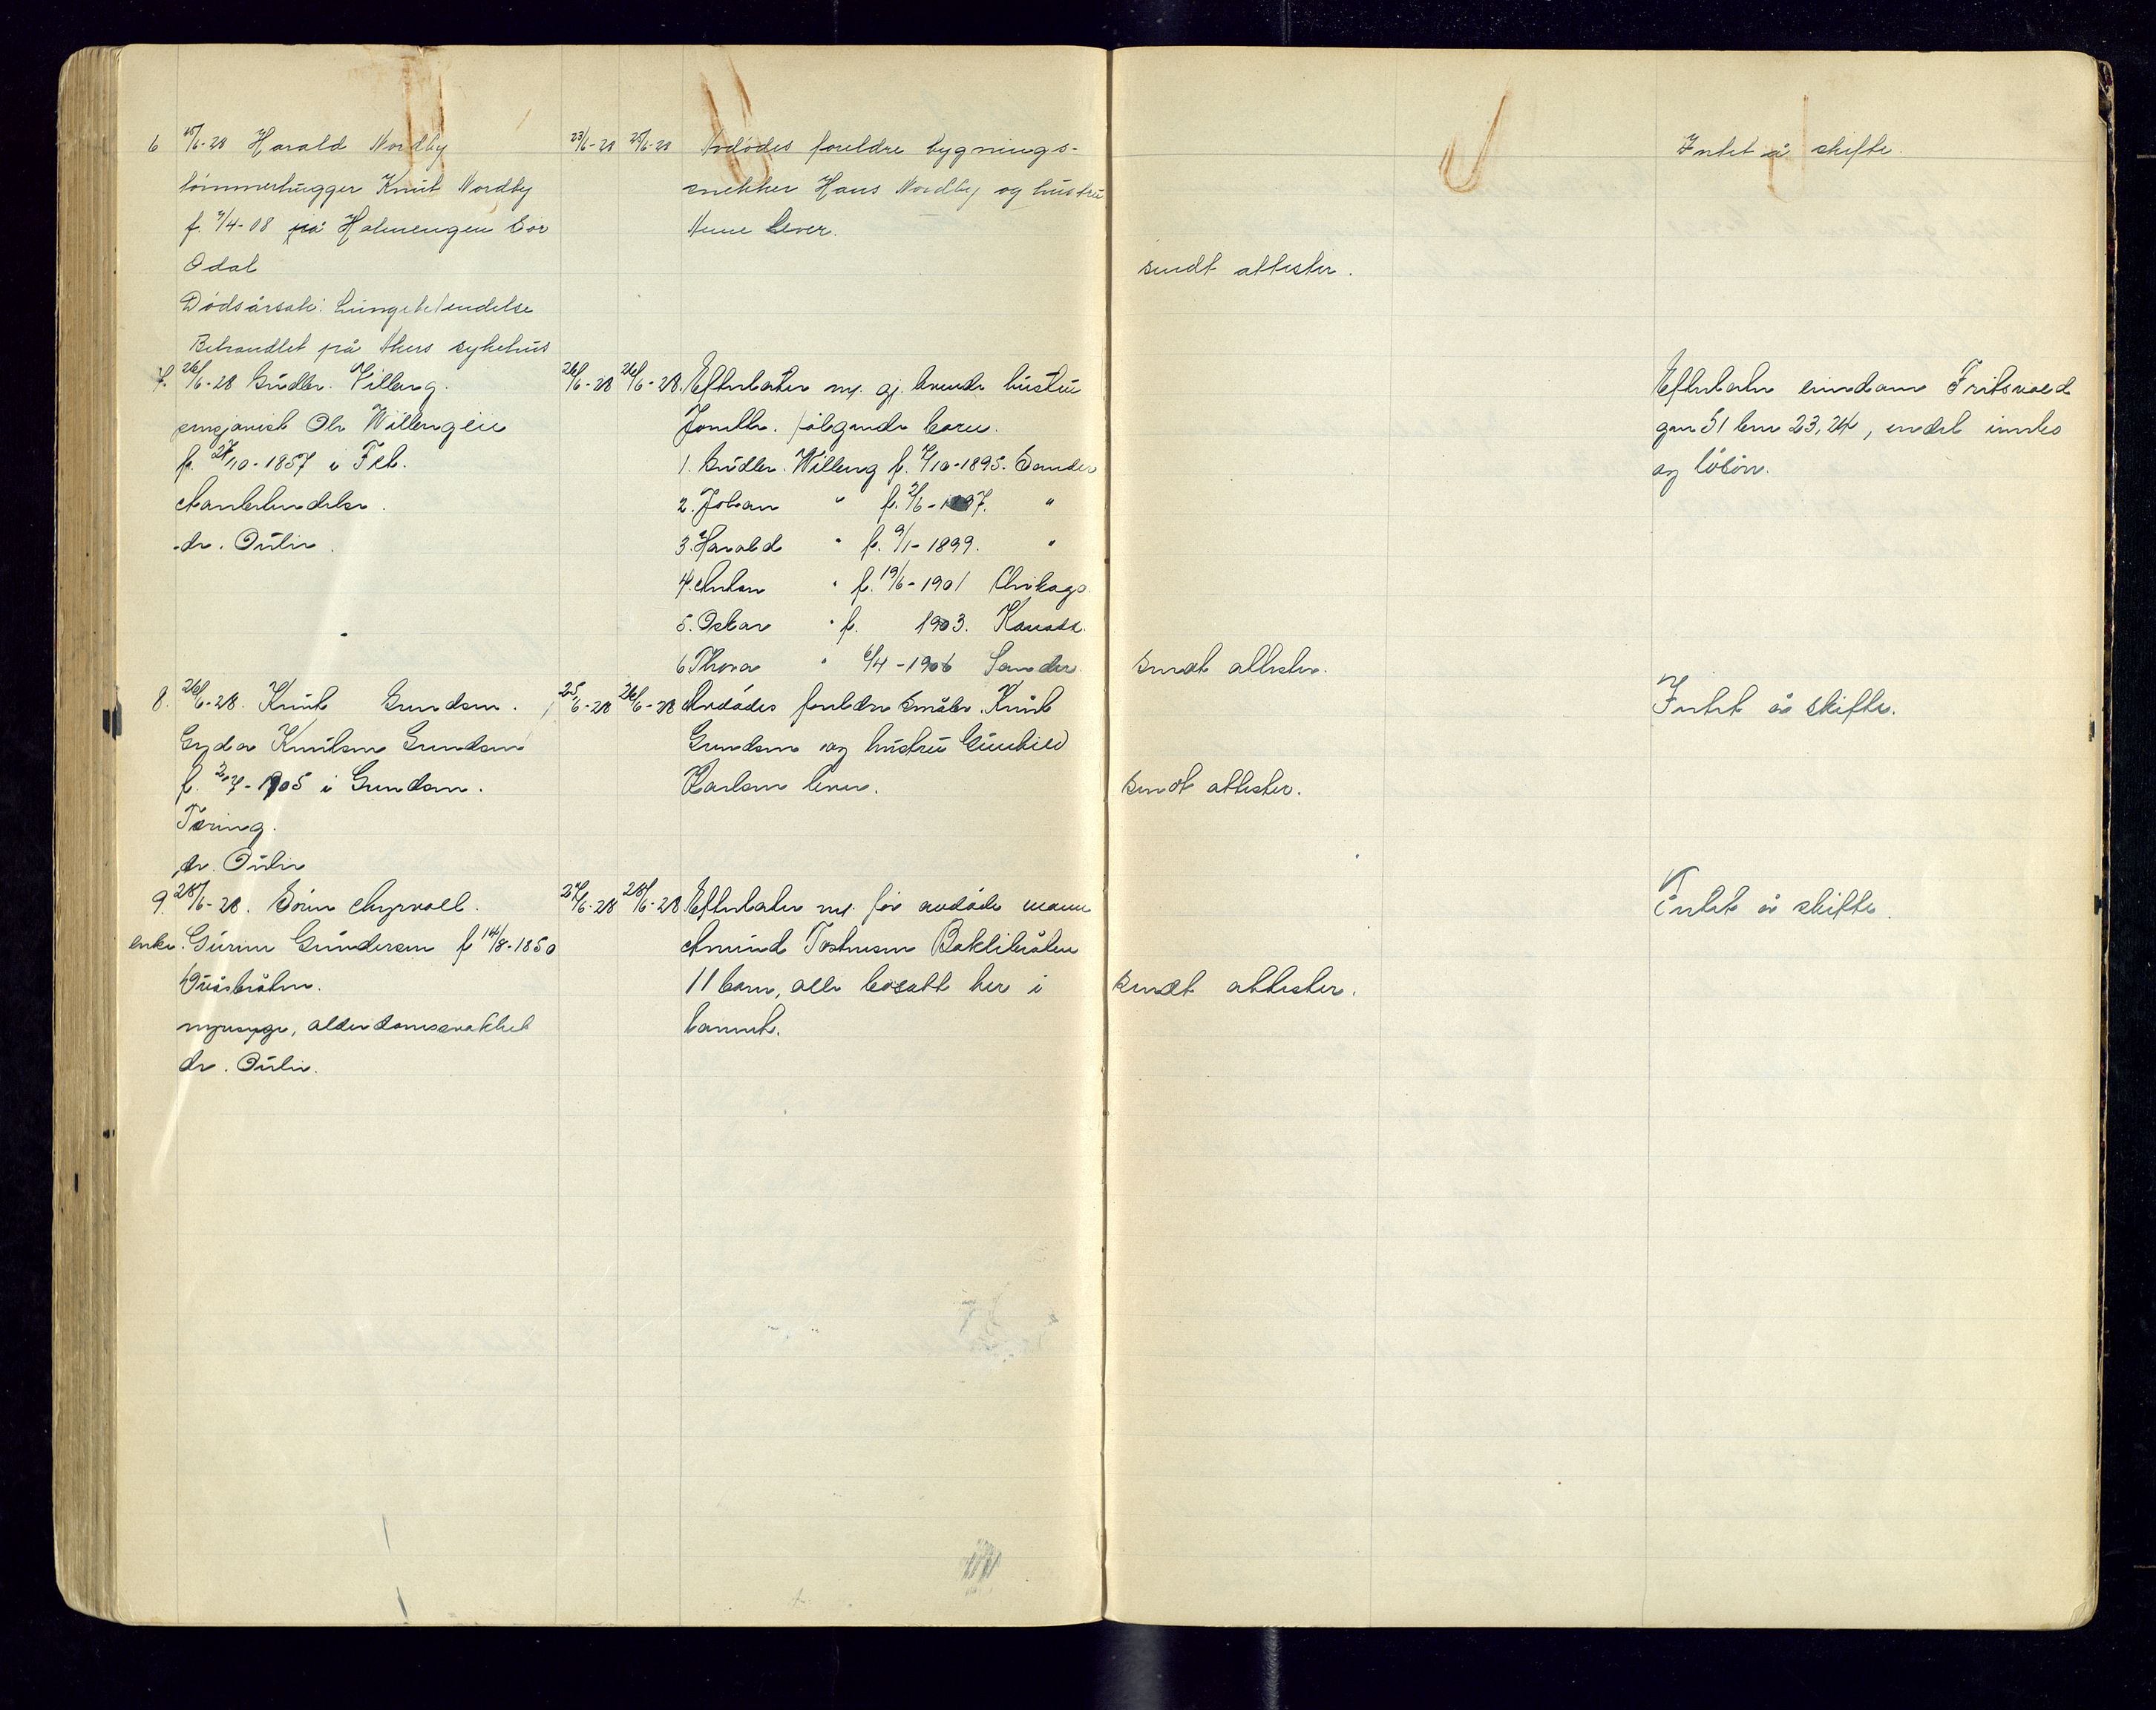 6 25/6-28 Harald Nordby 23/6-28 25/6-28 Avdødes foreldre bygnings- Intet å skifte.
tømmerhugger Knut Nordby snekker Hans Nordby og hustru
f. 7/4-08 på Holmengen Sør Anne lever.
Odal sendt attester.
Dødsårsak: Lungebetendelse
Behandlet på Akers sykehus
7. 26/6-28 Gudbr. Villeng. 26/6-28 26/6-28. Efterlater sig gj. levende hustru Efterlater eiendom Fritsvold
pensjonist Ole Willengen følgende barn. gnr 51 bnr 23, 24, endel innbo
f. 27/10-1857 i Fet. 1. Gudbr. Willeng f. 7/10-1895. Sander og løsøre.
2. Johan " f. 2/6-1897. "
dr. Oulie. 3. Harald " f. 9/1-1899. "
4. Anton " f. 19/6-1901 Chikago.
5. Oskar " f. 1903. Kanada.
6 Thora " 6/4-1906 Sander. sendt attester.
8. 26/6-28. Knut Grundsen. 25/6-28 26/6-28 Avdødes foreldre småbr. Knut Intet å skifte.
Gyda Knutsen Grundsen Grundsen og hustru Gunhild
f. 2/7-1905 i Grundsen. Karlsen lever. sendt attester.
Tæring.
dr. Oulie
9. 28/6-28. Søren Myrvoll. 27/6-28 28/6-28. Efterlater sig før avdøde mann Intet å skifte.
enke. Gurine Gundersen f 14/8-1850 Amund Baklibråten
11 barn, alle bosatt her i sendt attester.
nyresyge, alderdomssvakhet landet.
dr. Oulie.